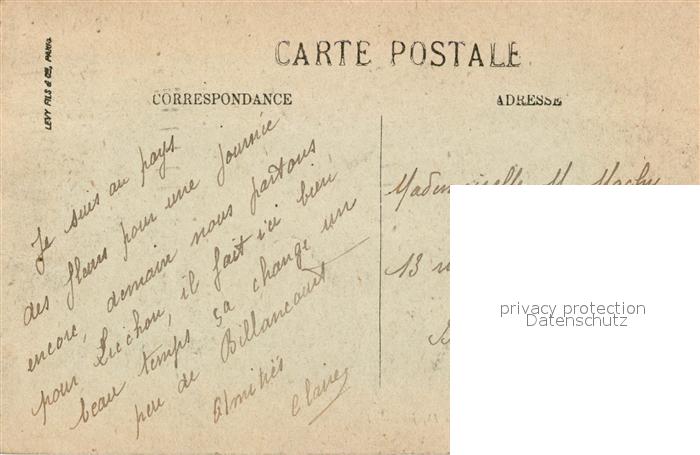 LEVY FILS & CIE, PARIS
CARTE POSTALE
CORRESPONDANCE
ADRESSE
Je suis au pays
des fleurs pour une journée
encore, demain nous partons
pour Luchon, il fait ici bien
beau temps ça change un
peu de Billancourt
Amitiés
Claire
Mademoiselle M.
13
privacy protection
Datenschutz